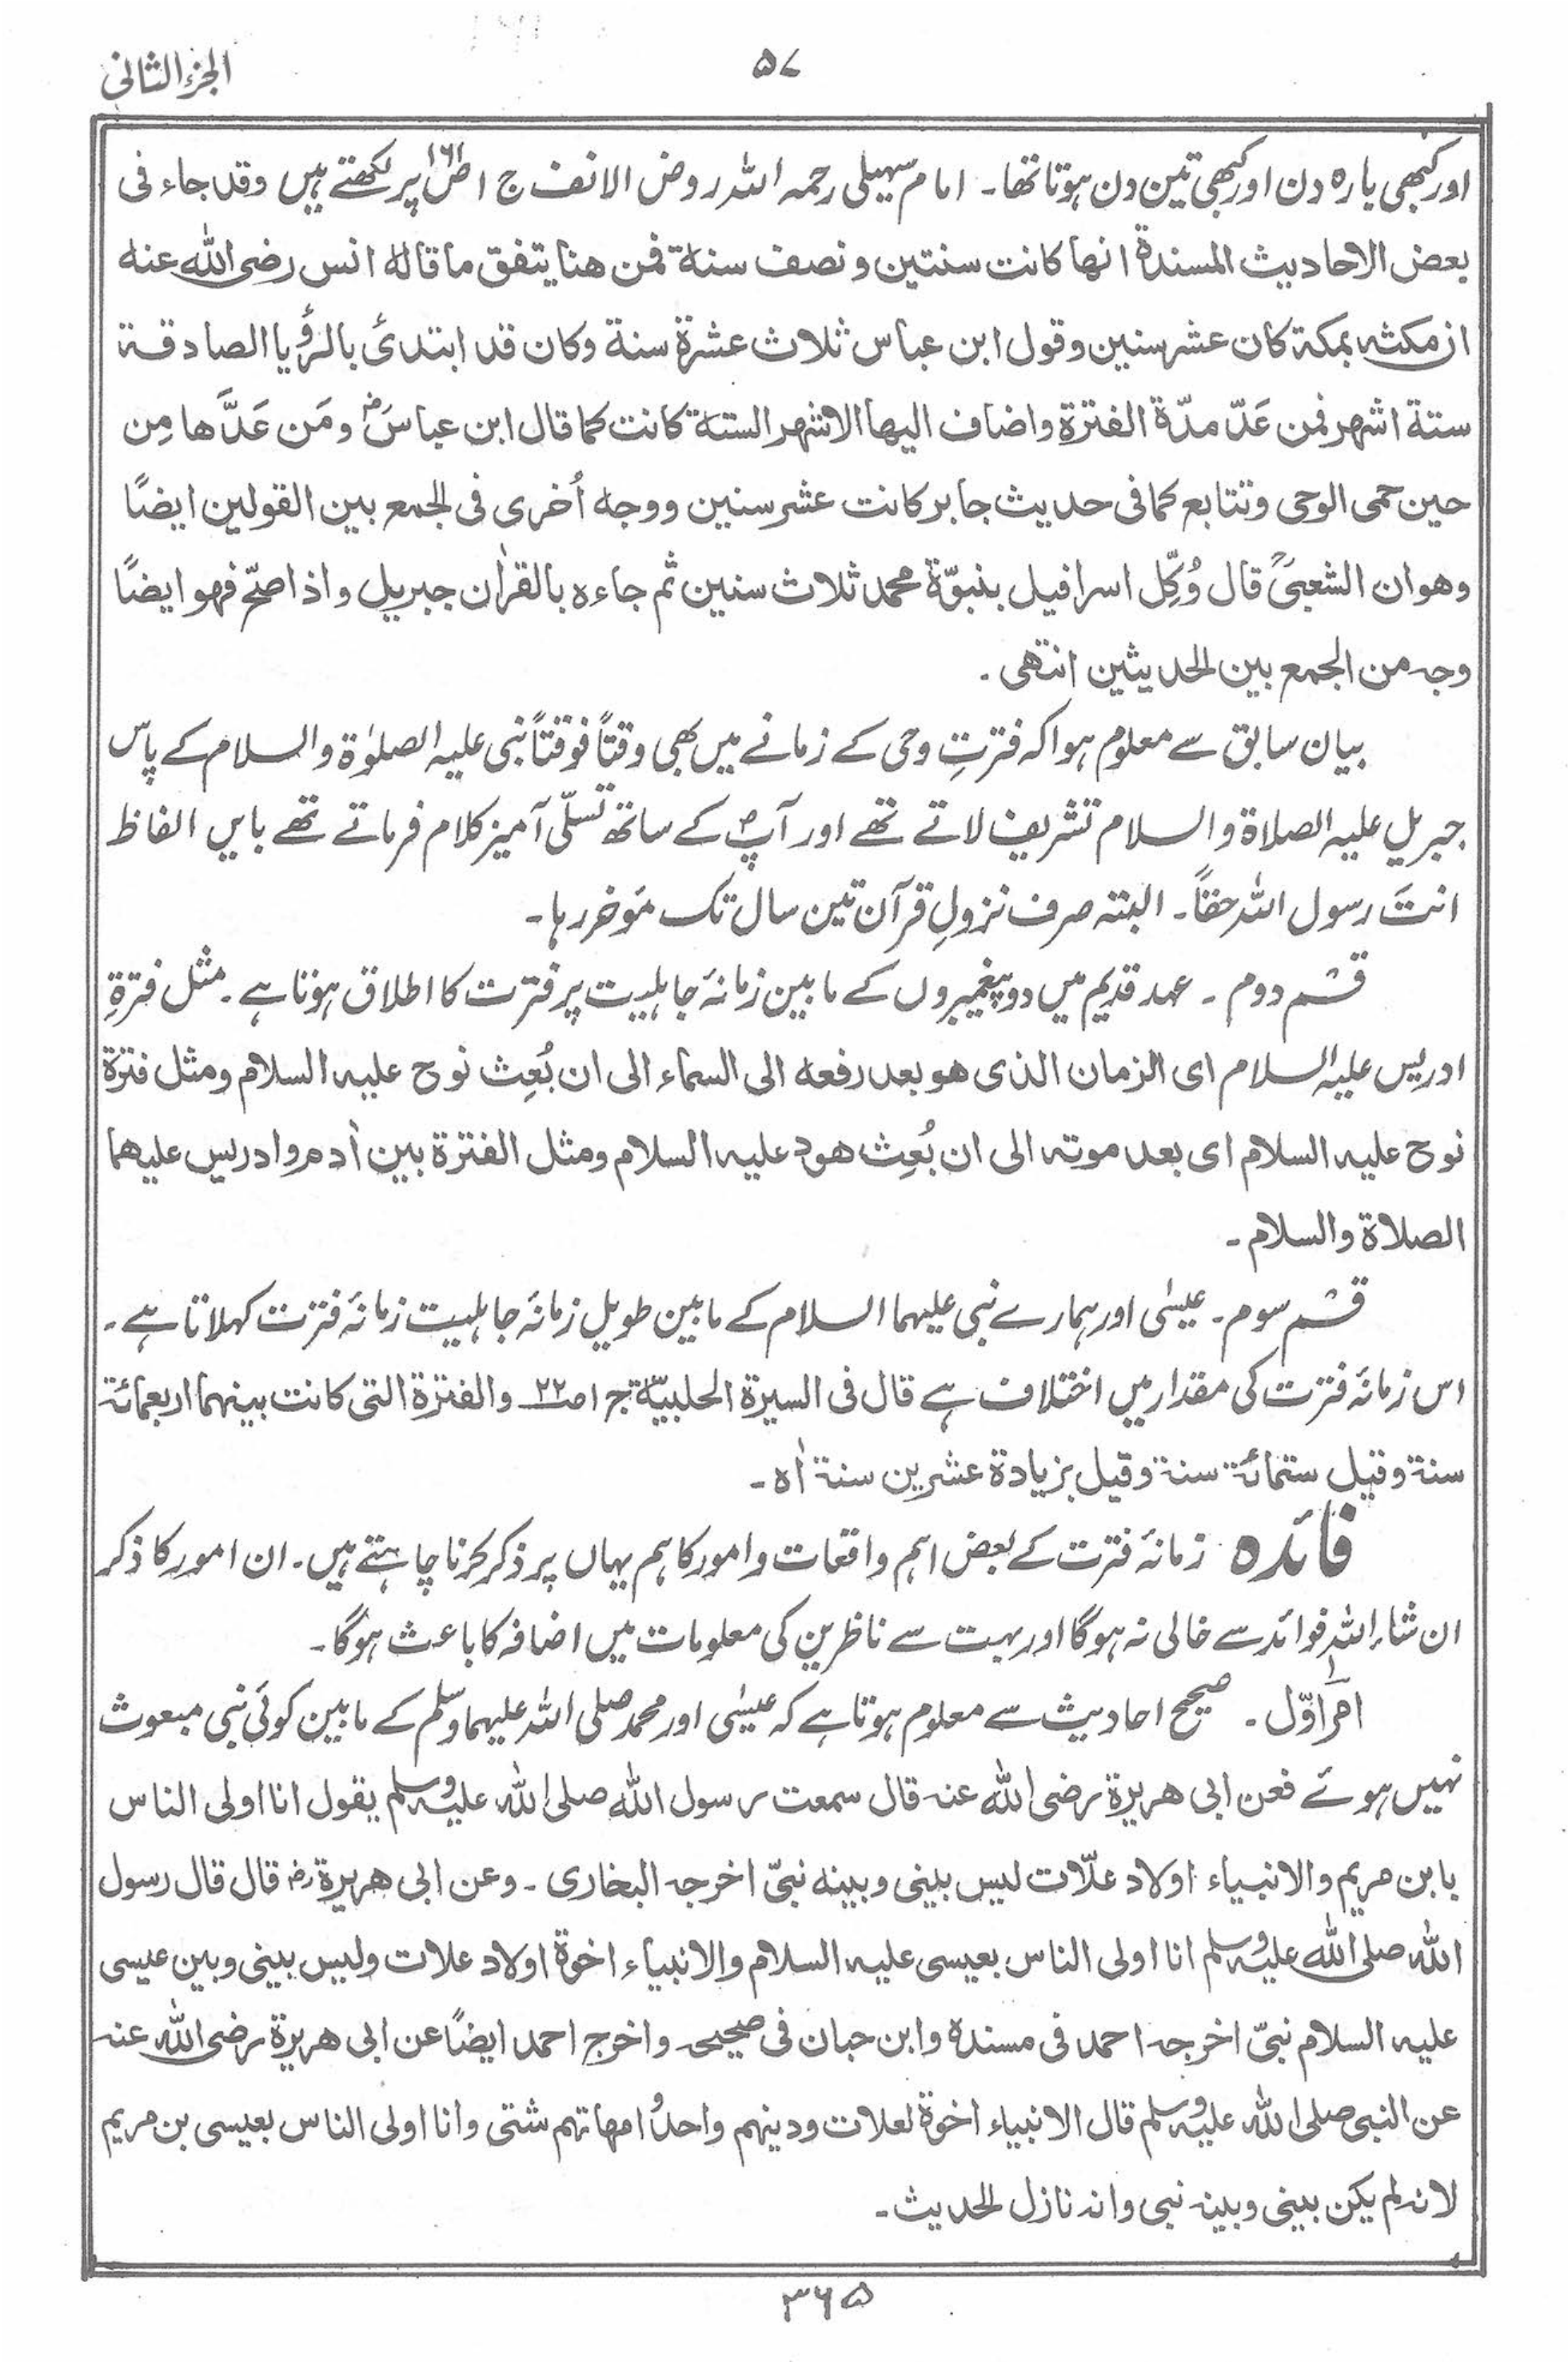 الجزء الثانی
۵۷
اور کبھی بارہ دن اور کبھی تین دن ہوتا تھا۔ امام سہیلی رحمہ اللہ روض الانف ج ا ص۱۶۱ پر لکھتے ہیں وقد جاء فی
بعض الاحادیث المسندة انھا کانت سنتین ونصف سنة فمن ھنا یتفق ما قاله انس رضی اللہ عنه
ان مکثه بمکة کان عشر سنین وقول ابن عباس ثلاث عشرة سنة وکان قد ابتدئ بالرؤیا الصادقة
ستة اشھر فمن عَدّ مدّة الفترة واضاف الیھا الاشھر الستة کانت کما قال ابن عباسؓ ومَن عَدَّھا مِن
حین حمی الوحی وتتابع کما فی حدیث جابر کانت عشر سنین ووجه اُخری فی الجمع بین القولین ایضًا
وھو ان الشعبیؒ قال وُکِّل اسرافیل بنبوّة محمد ثلاث سنین ثم جاءہ بالقراٰن جبریل واذا صحّ فھو ایضًا
وجه من الجمع بین الحدیثین انتھی ۔
بیان سابق سے معلوم ہوا کہ فترتِ وحی کے زمانے میں بھی وقتاً فوقتاً نبی علیہ الصلوٰۃ والسلام کے پاس
جبریل علیہ الصلاۃ والسلام تشریف لاتے تھے اور آپؐ کے ساتھ تسلّی آمیز کلام فرماتے تھے بایں الفاظ
انتَ رسول اللہ حقاً۔ البتہ صرف نزولِ قرآن تین سال تک مَوخر رہا۔
قسم دوم ۔ عہد قدیم میں دو پیغمبروں کے مابین زمانۂ جاہلیت پر فترت کا اطلاق ہوتا ہے۔ مثل فترةِ
ادریس علیہ السلام ای الزمان الذی ھو بعد رفعه الی السماء الی ان بُعِث نوح علیه السلام ومثل فترة
نوح علیه السلام ای بعد موته الی ان بُعِث ھود علیه السلام ومثل الفترة بین اٰدم وادریس علیھما
الصلاة والسلام ۔
قسم سوم ۔ عیسٰی اور ہمارے نبی علیہما السلام کے مابین طویل زمانۂ جاہلیت زمانۂ فترت کہلاتا ہے ۔
اس زمانۂ فترت کی مقدار میں اختلاف ہے قال فی السیرة الحلبیّة ج ا ص۲۲ والفترة التی کانت بینھما اربعمائة
سنة وقیل ستمائة سنة وقیل بزیادة عشرین سنة اٰه ۔
فائدہ زمانۂ فترت کے بعض اہم واقعات و امور کا ہم یہاں پر ذکر کرنا چاہتے ہیں۔ ان امور کا ذکر
ان شاء اللہ فوائد سے خالی نہ ہوگا اور بہت سے ناظرین کی معلومات میں اضافہ کا باعث ہوگا۔
امر اوّل ۔ صحیح احادیث سے معلوم ہوتا ہے کہ عیسٰی اور محمد صلی اللہ علیہما وسلم کے مابین کوئی نبی مبعوث
نہیں ہوئے فعن ابی ھریرة رضی اللہ عنه قال سمعت رسول اللہ صلی اللہ علیه وسلم یقول انا اولی الناس
بابن مریم والانبیاء اولاد علّات لیس بینی وبینه نبیّ اخرجه البخاری ۔ وعن ابی ھریرة رضـ قال قال رسول
اللہ صلی اللہ علیه وسلم انا اولی الناس بعیسی علیه السلام والانبیاء اخوة اولاد علات ولیس بینی وبین عیسی
علیه السلام نبیّ اخرجه احمد فی مسندہ وابن حبان فی صحیحه واخرج احمد ایضًا عن ابی ھریرة رضی اللہ عنه
عن النبی صلی اللہ علیه وسلم قال الانبیاء اخوة لعلات ودینھم واحدٌ وامھاتھم شتی وانا اولی الناس بعیسی بن مریم
لانه لم یکن بینی وبینه نبی وانه نازل الحدیث ۔
۳۶۵